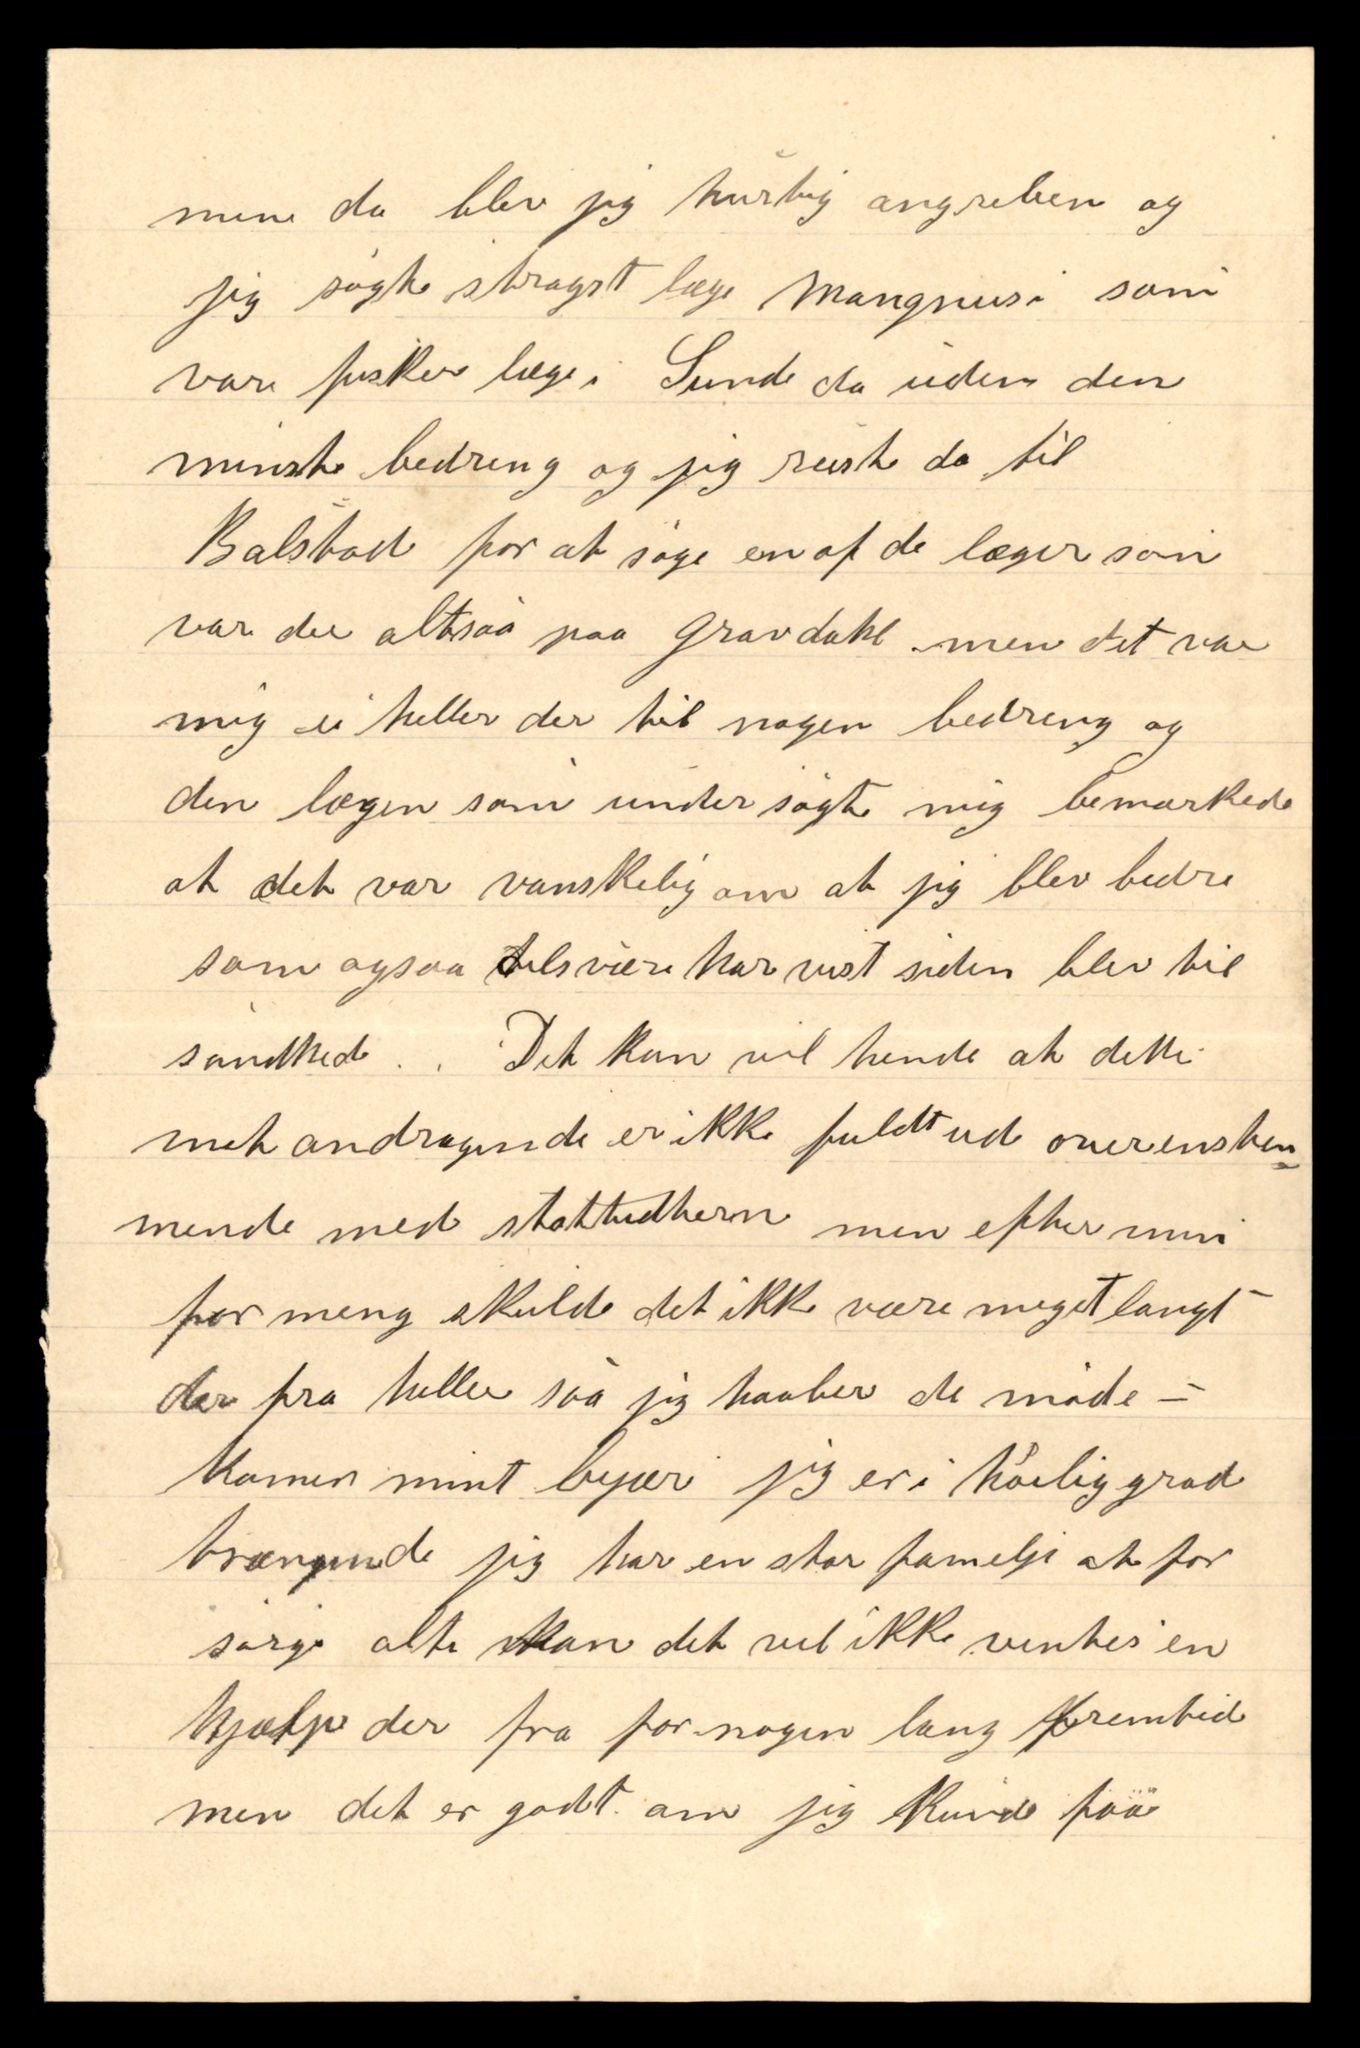 men da blev jig hurtig angreben og
jig søgte stragst læge Mangnus som
var fisker læge i Sund da uden den
minste bedreng og jig reiste da til
Balstad for at søge en af de læger som
var der altsaa paa Gravdahl men det var
mig ei heller der til nogen bedreng og
den lægen som under søgte mig bemærkede
at det var vanskelig om at jig blev bedre
som ogsaa dels være har vist siden blev til
sandhed . . Det kan vil hende at dette
mit andragende er ikke fuldt ud overensstem
mende med stattudtern men efter min
for meng skulde det ikke være meget langt
der fra heller saa jig haaber de møde -
kommer mint begjær jig er i høilig grad
trængende jig har en stor famelje at for
sørge alt kan det vel ikke ventes en
hjælp der fra for nogen lang fremtid
men det er godt om jig kunde faa